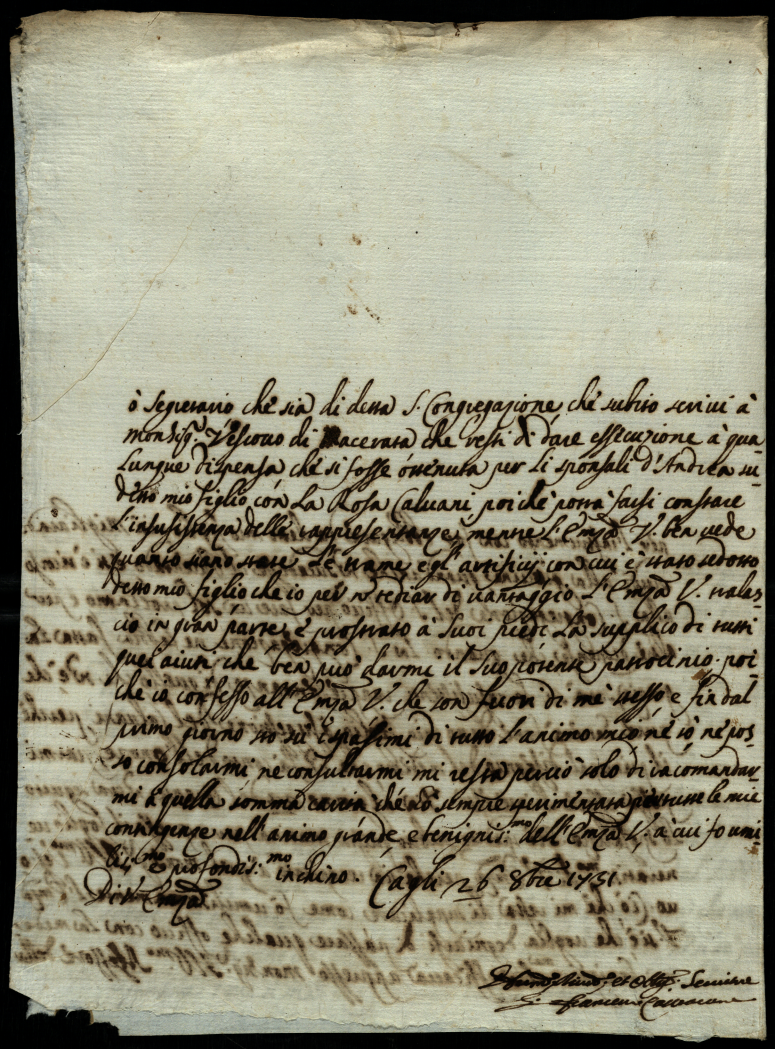 ò Segretario che sia di detta S. Congregazione, che subito scrivi à
Monsig.r Vescovo di Macerata che resti di dare essecuzione à qua-
lunque dispensa che si fosse ottenuta per li sponsali d'Andrea su-
detto mio figlio con la Rosa Calvani poiche potrà farsi constare
l'insusistenza delle rappresentanze, mentre l'Emza V. ben vede
quanto siano state le trame e gl'artificij con cui è stato sedotto
detto mio figlio che io per n tediar di vantaggio l'Emza V. trala-
scio in gran parte, e prostrato à suoi piedi la supplico di tutti
quei aiuti che ben può darmi il suo potente patrocinio poi-
che io confesso all'Emza V. che son fuori di me stesso e fin dal
primo giorno stò sù spassimi di tutto l'animo mio nè sò ne pos-
so consolarmi ne consultarmi mi resta perciò solo di racomandar-
mi à quella somma carità che hò sempre sperimentata per tutte le mie
contingenze nell'animo grande, e benignis:mo dell'Emza V. à cui fo umi-
lis:mo e profondis:mo inchino. Cagli 26 8bre 1731
Di V. Emza
Servitore
Francesco